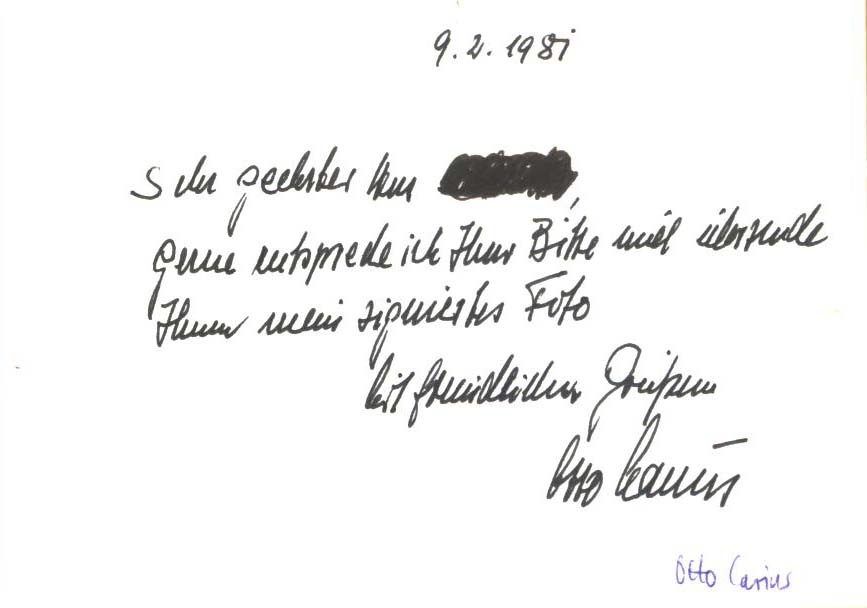 9.2.1981
Sehr geehrter Herr
gerne entspreche ich Ihrer Bitte und übersende
Ihnen mein signiertes Foto
Mit freundlichen Grüßen
Otto Carius
Otto Carius